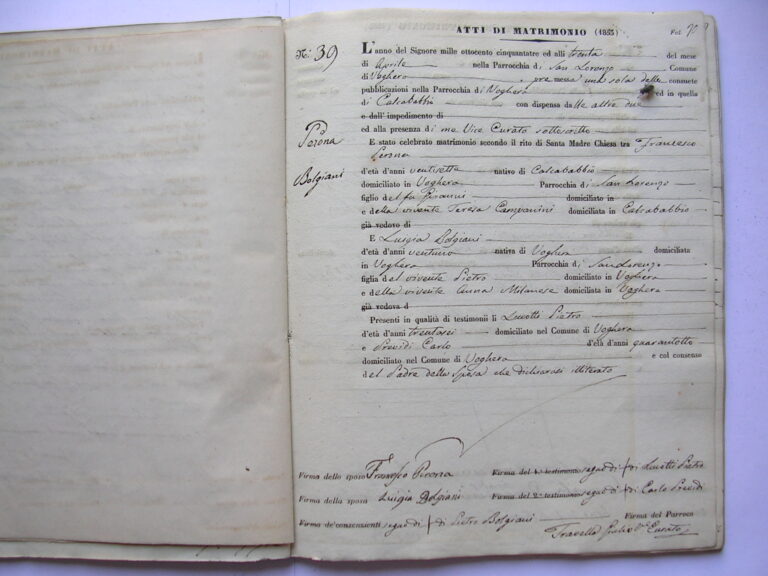 ATTI DI MATRIMONIO (1853) Fol. 70
N.° 39
L'anno del Signore mille ottocento cinquantatre ed alli trenta del mese
di Aprile nella Parrocchia di San Lorenzo Comune
di Voghera premessa una sola delle consuete
pubblicazioni nella Parrocchia di Voghera ed in quella
di Calcababbio con dispensa dalle altre due
e dall'impedimento di
ed alla presenza di me Vice Curato sottoscritto
E stato celebrato matrimonio secondo il rito di Santa Madre Chiesa tra Francesco
Perona
Perona
Bolgiani
d'età d'anni ventisette nativo di Calcababbio
domiciliato in Voghera Parrocchia di San Lorenzo
figlio del fu domiciliato in
e della vivente Teresa Campanini domiciliata in Calcababbio
già vedovo di
E Luigia Bolgiani
d'età d'anni ventuno nativa di Voghera domiciliata
in Voghera Parrocchia di San Lorenzo
figlia del vivente Pietro domiciliato in Voghera
e della vivente Anna Milanese domiciliata in Voghera
già vedova d
Presenti in qualità di testimonii li Pietro
d'età d'anni trentasei domiciliato nel Comune di Voghera
e Previdi Carlo d'età d'anni quarantotto
domiciliato nel Comune di Voghera e col consenso
del Padre della Sposa che dichiarasi illiterato
Firma dello sposo Francesco Perona Firma del 1.° testimonio segno di † di Pietro
Firma della sposa Luigia Bolgiani Firma del 2.° testimonio segno di † di Carlo Previdi
Firma de' consenzienti segno di † di Pietro Bolgiani Firma del Parroco
Curato